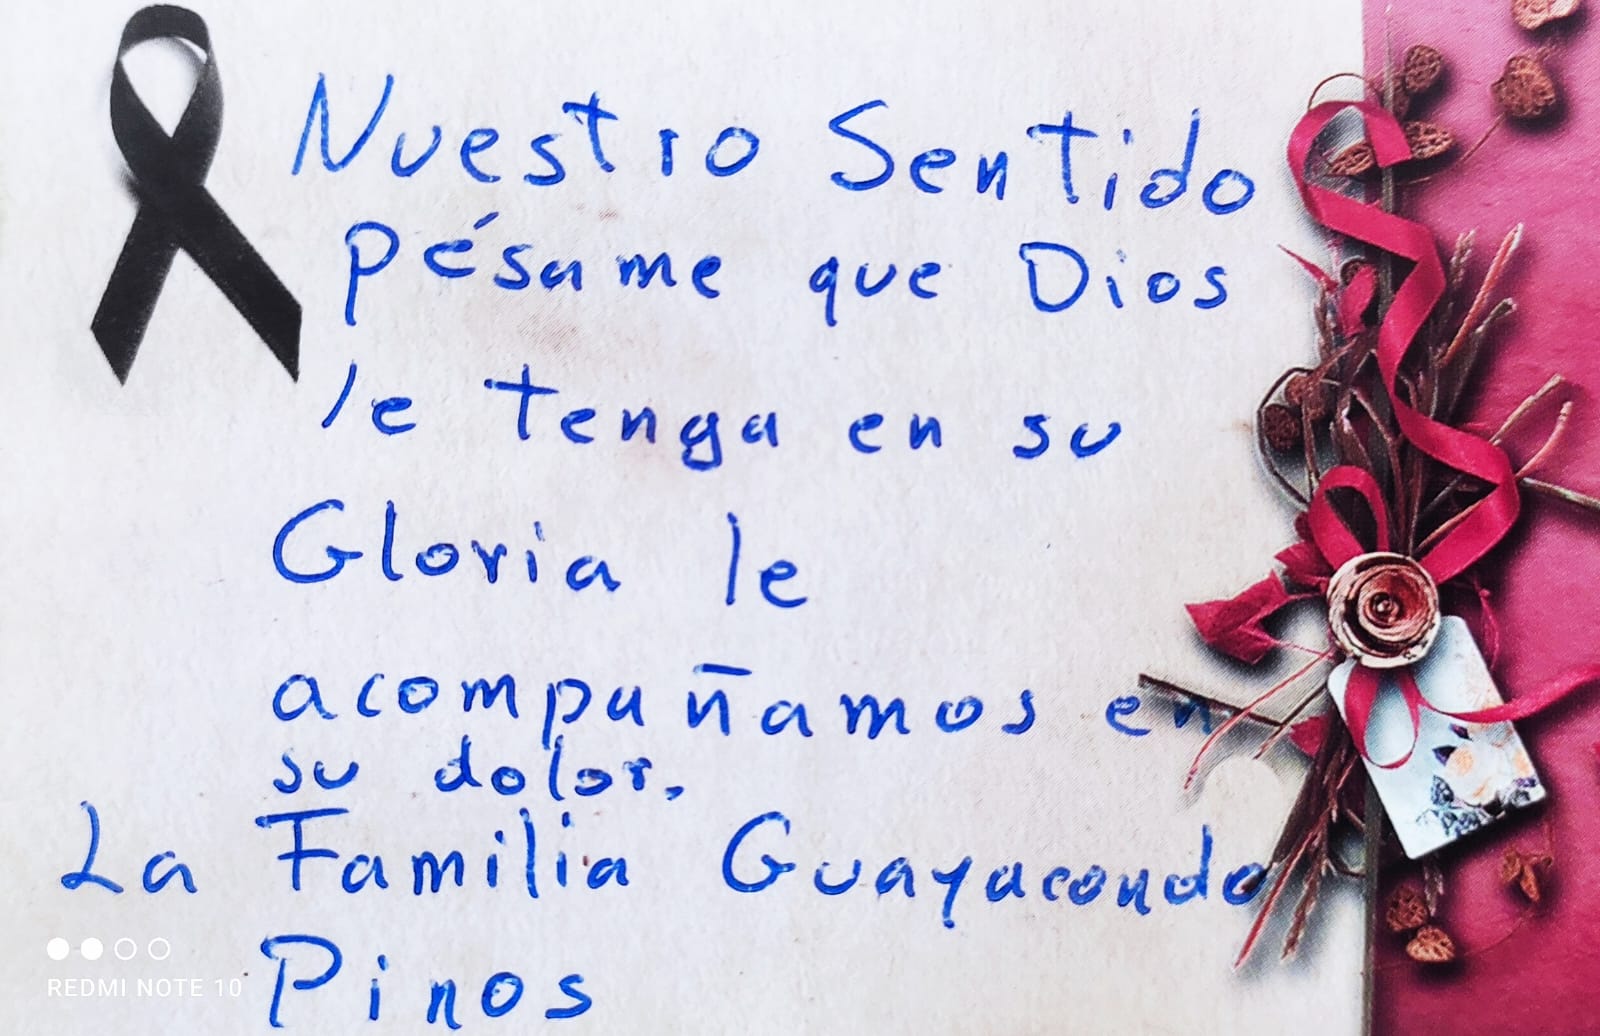 Nuestro Sentido
pésame que Dios
le tenga en su
Gloria le
acompañamos en
su dolor.
La Familia Guayacondo
Pinos
REDMI NOTE 10